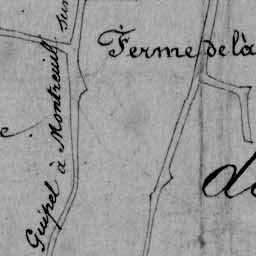 Ferme de là
Guipel à Montreuil sur